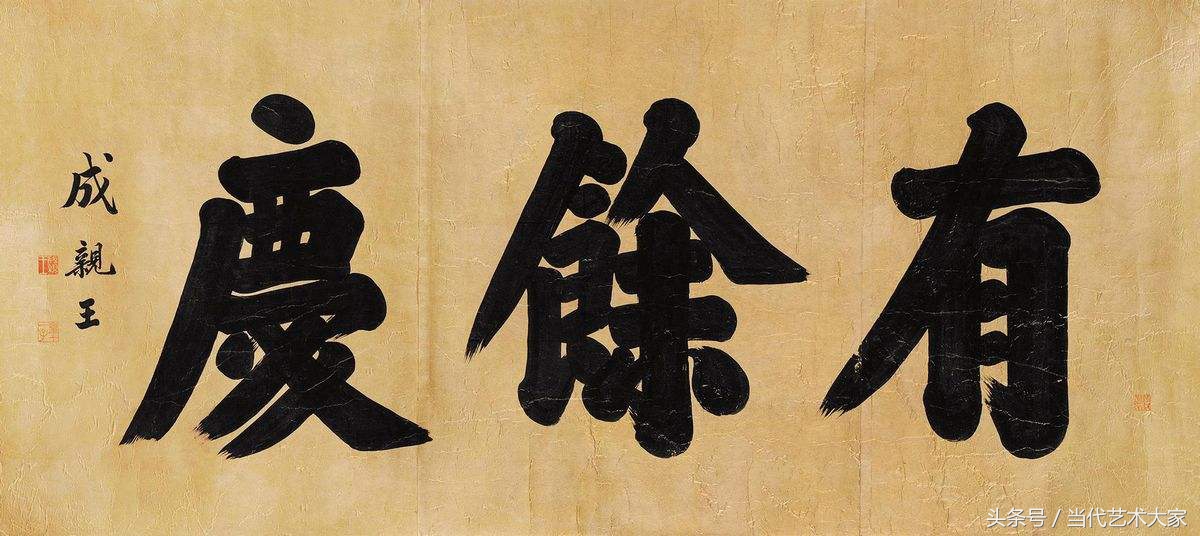 有餘慶
成親王
头条号 / 当代艺术大家